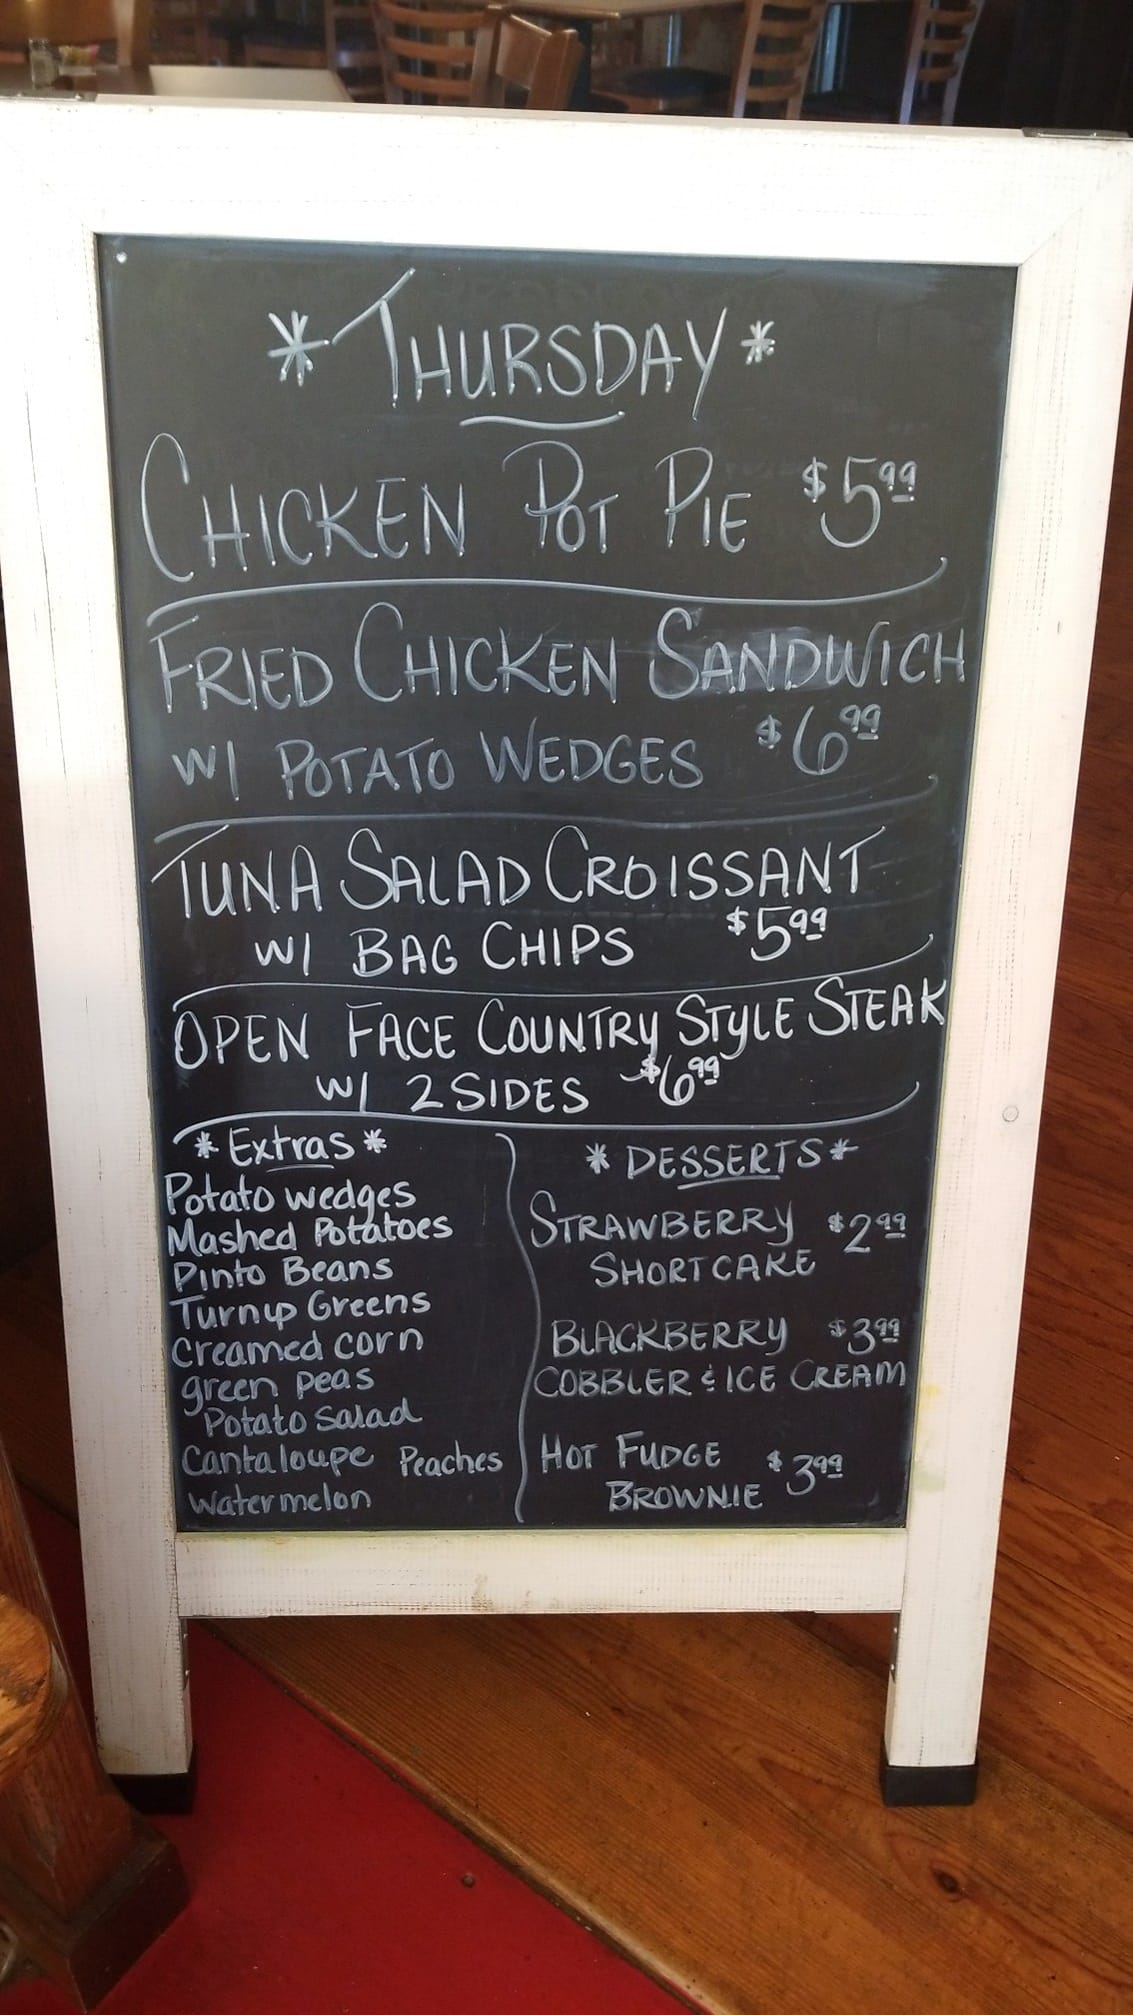 * THURSDAY *
CHICKEN POT PIE $5.99
FRIED CHICKEN SANDWICH
W/ POTATO WEDGES $6.99
TUNA SALAD CROISSANT
W/ BAG CHIPS $5.99
OPEN FACE COUNTRY STYLE STEAK
W/ 2 SIDES $6.99
* Extras *
Potato wedges
Mashed Potatoes
Pinto Beans
Turnip Greens
Creamed corn
green peas
Potato Salad
Cantaloupe Peaches
Watermelon
* DESSERTS *
STRAWBERRY $2.99
SHORTCAKE
BLACKBERRY $3.99
COBBLER & ICE CREAM
HOT FUDGE $3.99
BROWNIE